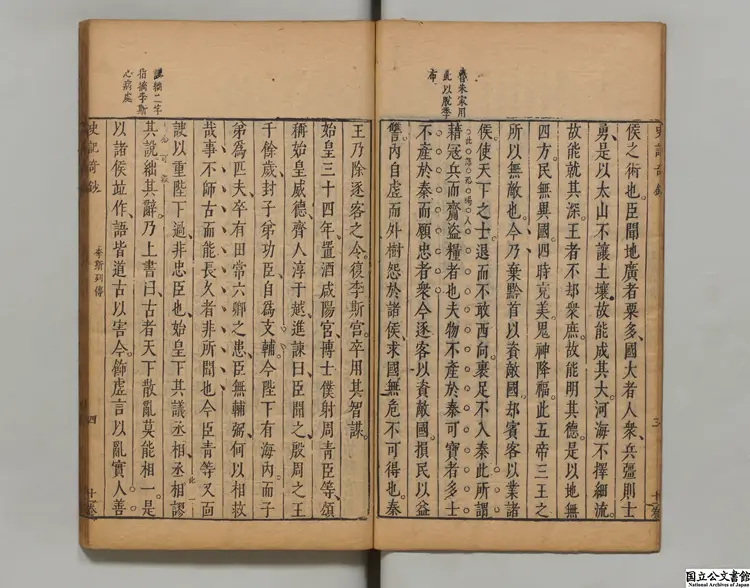 魯朱家用
此以脫季
布
侯之術也。臣聞地廣者粟多、國大者人衆、兵彊則士
勇、是以太山不讓土壤、故能成其大、河海不擇細流、
故能就其深、王者不却衆庶、故能明其德、是以地無
四方、民無異國、四時充美、鬼神降福、此五帝三王之
所以無敵也、今乃棄黔首以資敵國、却賓客以業諸
侯、使天下之士、退而不敢西向、裹足不入秦、此所謂
藉冦兵而齎盜糧者也、夫物不產於秦、可寶者多、士
不產於秦、而願忠者衆、今逐客以資敵國、損民以益
讐、內自虛而外樹怨於諸侯、求國無危、不可得也。秦
二字
李斯
心病處
王乃除逐客之令、復李斯官、卒用其智謀。
始皇三十四年、置酒咸陽宮、博士僕射周青臣等、頌
稱始皇威德、齊人淳于越進諫曰、臣聞之、殷周之王
千餘歲、封子弟功臣、自爲支輔、今陛下有海內、而子
弟爲匹夫、卒有田常六卿之患、臣無輔弼、何以相救
哉、事不師古而能長久者、非所聞也、今臣青等又面
諛以重陛下過、非忠臣也、始皇下其議丞相、丞相謬
其說、絀其辭、乃上書曰、古者天下散亂、莫能相一、是
以諸侯並作、語皆道古以害今、飾虛言以亂實、人善
史記奇鈔
李斯列傳
四
国立公文書館
National Archives of Japan